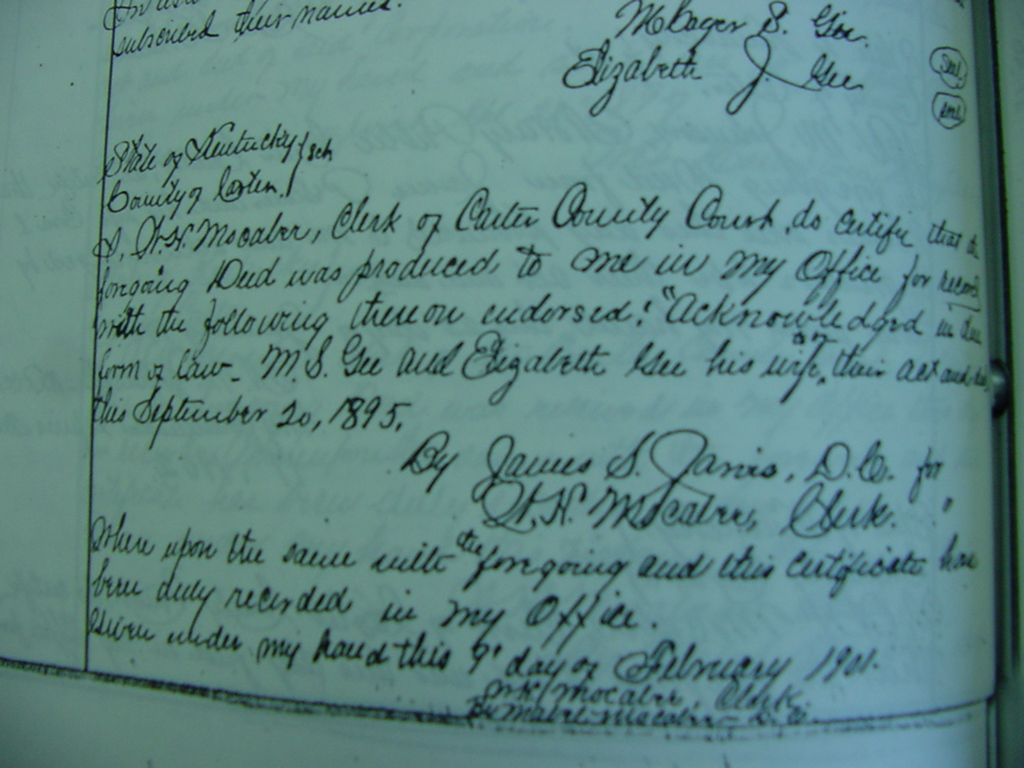 subscribed their names.
S. Gee.
Elizabeth J. Gee
Seal
Seal
State of Kentucky } sct
County of Carter }
I, Mocabee, Clerk of Carter County Court, do certify that the
foregoing Deed was produced to me in my Office for record
with the following thereon endorsed: "Acknowledged in due
form of law. M. S. Gee and Elizabeth Gee his wife, their act and
this September 20, 1895.
By James S. Jarvis, D.C. for
Mocabee, Clerk. "
Where upon the same with the foregoing and this certificate have
been duly recorded in my Office.
Given under my hand this 9" day of February 1901.
Mocabee, Clerk
By Mabel Mocabee D.C.